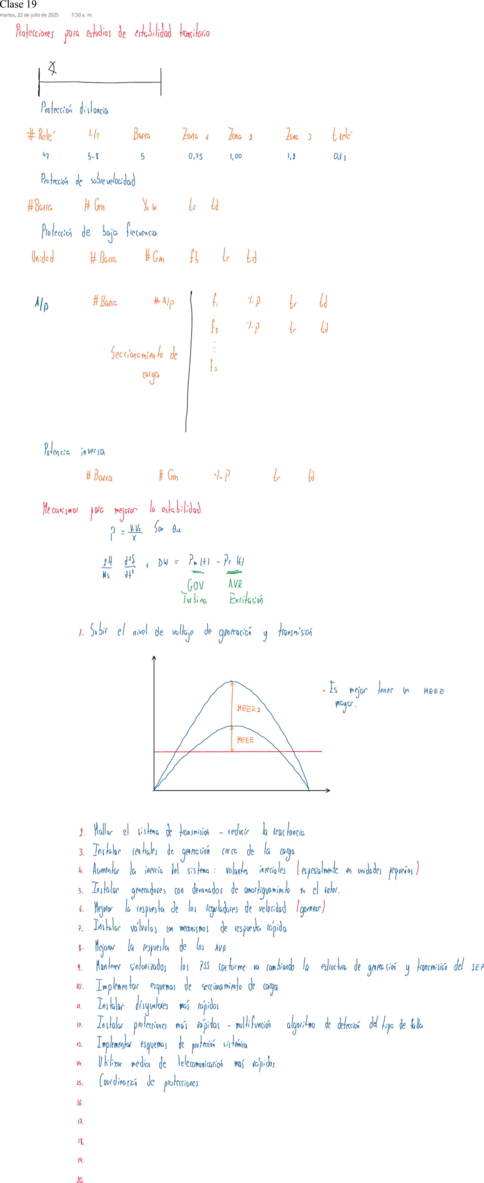 Clase 19
martes, 22 de julio de 2025 7:50 a. m.
Protecciones para estudios de estabilidad transitoria
Protección distancia
# Relé L/T Barra Zona 1 Zona 2 Zona 3 t relé
5-8 5 0,75 1,00 1,2
Protección de sobrevelocidad
# Barra # Gen % w tr td
Protección de baja frecuencia
Unidad # Barra # Gen tr td
# Barra f1 % P tr td
f2 % P tr td
Seccionamiento de
carga
Potencia inversa
# Barra # Gen % P tr td
Mecanismos para mejorar la estabilidad
Pm (t) - Pe (t)
GOV AVR
Turbina Excitación
1. Subir el nivel de voltaje de generación y transmisión
- Es mejor tener un
mayor.
2. Mallar el sistema de transmisión - reducir la reactancia
3. Instalar centrales de generación cerca de la carga
4. Aumentar la inercia del sistema: volantes inerciales (especialmente en unidades pequeñas)
5. Instalar generadores con devanados de amortiguamiento en el rotor.
6. Mejorar la respuesta de los reguladores de velocidad (governor)
7. Instalar válvulas con mecanismos de respuesta rápida
8. Mejorar la respuesta de los AVR
9. Mantener sintonizados los PSS conforme va cambiando la estructura de generación y transmisión del SEP
10. Implementar esquemas de seccionamiento de carga
11. Instalar disyuntores más rápidos
12. Instalar protecciones más rápidas - multifunción algoritmo de detección del tipo de falla
13. Implementar esquemas de protección sistémica
14. Utilizar medios de telecomunicación más rápidos
15. Coordinación de protecciones
16.
17.
18.
19.
20.